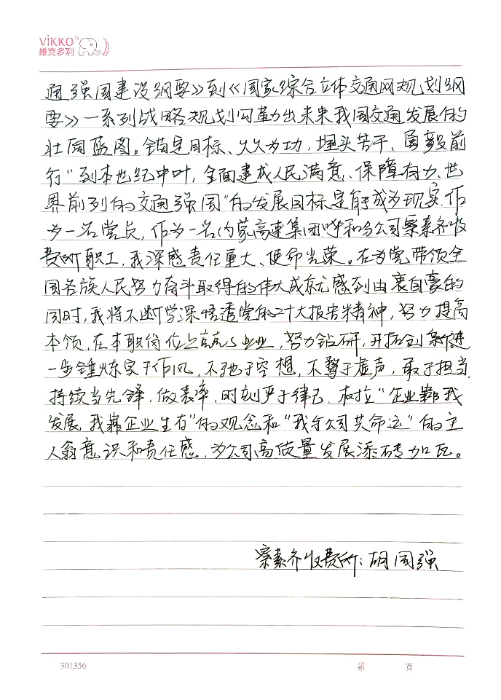 VIKKO
维克多利
通强国建设纲要》到《国家综合立体交通网规划纲
要》一系列战略规划勾勒出未来我国交通发展的
壮阔蓝图。锚定目标、久久为功,埋头苦干,勇毅前
行"到本世纪中叶,全面建成人民满意、保障有力、世
界前列的交通强国"的发展目标定能成为现实。作
为一名党员,作为一名内蒙高速集团呼和分公司察素齐收
费所职工,我深感责任重大、使命光荣。在为党带领全
国各族人民努力奋斗取得的伟大成就感到由衷自豪的
同时,我将不断学深悟透党的二十大报告精神,努力提高
本领,在本职岗位上兢兢业业,努力钻研,开拓创新,进
一步锤炼实干作风,不驰于空想,不骛于虚声,敢于担当
持续当先锋,做表率,时刻严于律己,树立"企业靠我
发展,我靠企业生存"的观念和"我与公司共命运"的主
人翁意识和责任感,为公司高质量发展添砖加瓦。
察素齐收费所:胡国强
301356
第 页